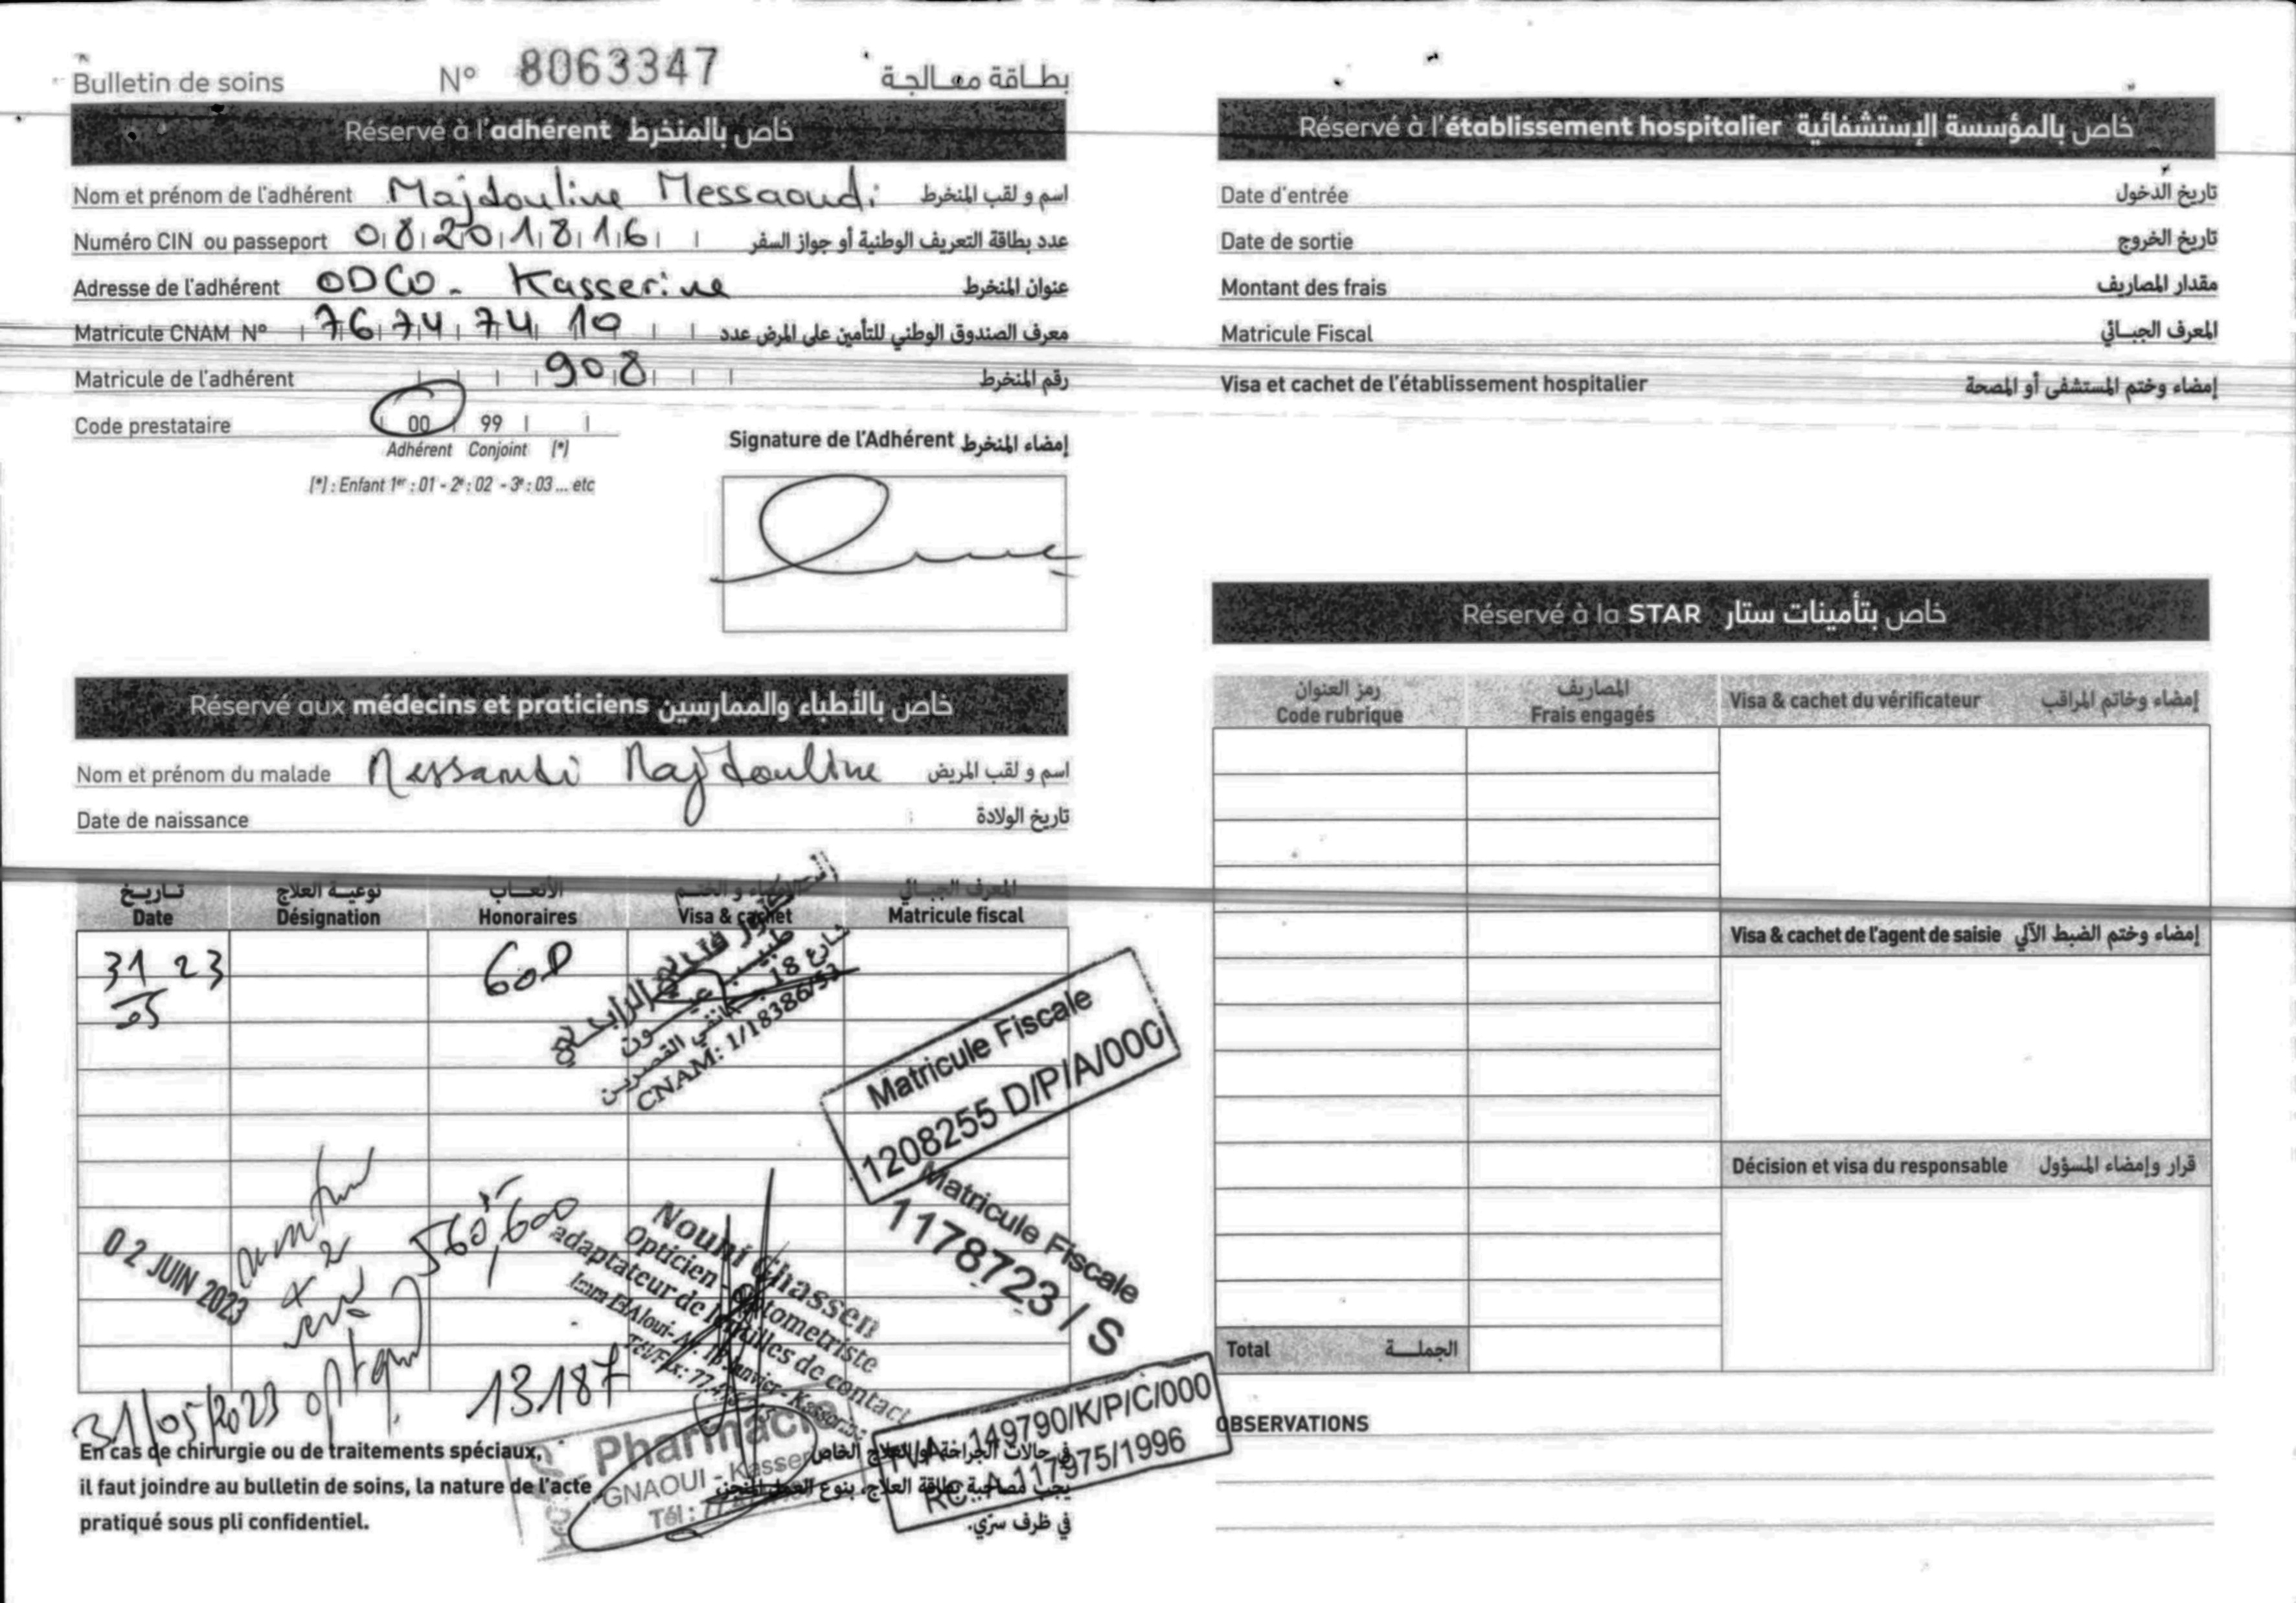 Bulletin de soins N° 8063347 بطاقة معالجة
Réservé à l'adhérent خاص بالمنخرط
Nom et prénom de l'adhérent Majdouline Messaoudi اسم و لقب المنخرط
Numéro CIN ou passeport 08201816 عدد بطاقة التعريف الوطنية أو جواز السفر
Adresse de l'adhérent ODCO - Kasserine عنوان المنخرط
Matricule CNAM N° 76747410 معرف الصندوق الوطني للتأمين على المرض عدد
Matricule de l'adhérent 908 رقم المنخرط
Code prestataire 00 99
Adhérent Conjoint (*)
(*) : Enfant 1er : 01 - 2e : 02 - 3e : 03 ... etc
Signature de l'Adhérent إمضاء المنخرط
Réservé aux médecins et praticiens خاص بالأطباء والممارسين
Nom et prénom du malade Messaoudi Majdouline اسم و لقب المريض
Date de naissance تاريخ الولادة
تاريخ نوعية العلاج الأتعاب الإمضاء و الختم المعرف الجبائي
Date Désignation Honoraires Visa & cachet Matricule fiscal
31 23 60D
05
طبيب عيون
شارع 18
القصرين
CNAM: 1/18386/53
Matricule Fiscale
1208255 D/P/A/000
02 JUIN 2023
560,600
Nouhi Ghassen
Opticien - Optometriste
adaptateur de lentilles de contact
Imm ElAloui- Av. 18 Janvier - Kasserine
Matricule Fiscale
1178723 / S
31/05/2023 optique 13187
Pharmacie
GNAOUI - Kasserine
Tél : 77
149790/K/P/C/000
RC: A 117975/1996
En cas de chirurgie ou de traitements spéciaux,
il faut joindre au bulletin de soins, la nature de l'acte
pratiqué sous pli confidentiel.
في حالات الجراحة أو العلاج الخاص
يجب مصاحبة بطاقة العلاج، بنوع العمل المنجز
في ظرف سرّي.
Réservé à l'établissement hospitalier خاص بالمؤسسة الإستشفائية
Date d'entrée تاريخ الدخول
Date de sortie تاريخ الخروج
Montant des frais مقدار المصاريف
Matricule Fiscal المعرف الجبائي
Visa et cachet de l'établissement hospitalier إمضاء وختم المستشفى أو المصحة
Réservé à la STAR خاص بتأمينات ستار
رمز العنوان المصاريف
Code rubrique Frais engagés Visa & cachet du vérificateur إمضاء وخاتم المراقب
Visa & cachet de l'agent de saisie إمضاء وختم الضبط الآلي
Décision et visa du responsable قرار وإمضاء المسؤول
Total الجملة
OBSERVATIONS